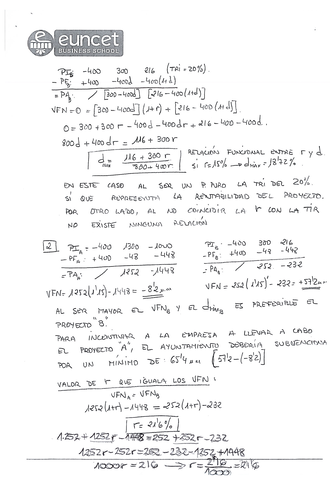 euncet
BUSINESS SCHOOL
PI_B -400 300 216 (TRI = 20%).
- PF_B: +400 -400d -400(1+d)
= PA_B: / [300-400d] [216-400(1+d)]
VFN=0 = [300-400d](1+r) + [216-400(1+d)].
0 = 300 + 300r - 400d - 400dr + 216 - 400 - 400d.
800d + 400dr = 116 + 300r
d = 116 + 300r / 800 + 400r RELACIÓN FUNCIONAL ENTRE r y d.
EN ESTE CASO AL SER UN P. PURO LA TRI DEL 20%.
SÍ QUE REPRESENTA LA RENTABILIDAD DEL PROYECTO.
POR OTRO LADO, AL NO COINCIDIR LA r CON LA TIR
NO EXISTE NINGUNA RELACIÓN
2 PI_A = -400 1300 -1000 PI_B: -400 300 216
-PF_A: +400 -48 -448 -PF_B: +400 -48 -448
= PA_A: / 1252 -1448 = PA_B: / 252 -232
VFN = 1252(1'15) - 1448 = -8'2 VFN = 252(1'15) - 232 = +57'2
AL SER MAYOR EL VFN_B Y EL d ES PREFERIBLE EL
PROYECTO "B".
PARA INCENTIVAR A LA EMPRESA A LLEVAR A CABO
EL PROYECTO "A", EL AYUNTAMIENTO DEBERÍA SUBVENCIONAR
POR UN MÍNIMO DE: 65'4 [57'2 - (-8'2)]
VALOR DE r QUE IGUALA LOS VFN:
VFN_A = VFN_B
1252(1+r) - 1448 = 252(1+r) - 232
r = 21'6%
1252 + 1252r - 1448 = 252 + 252r - 232
1252r - 252r = 252 - 232 - 1252 + 1448
1000r = 216 → r = 216 / 1000 = 21'6